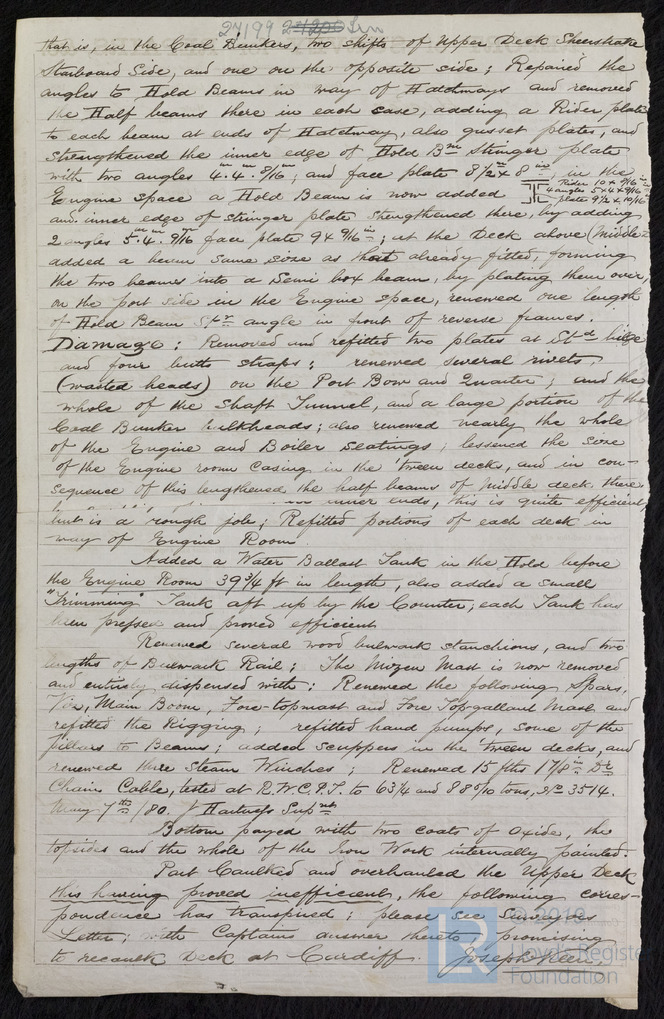 24199 Irn
that is, in the Coal Bunkers, two shifts of Upper Deck Sheerstrake
Starboard Side, and one on the opposite side; Repaired the
angles to Hold Beams in way of Hatchways and removed
the Half beams there in each case, adding a Rider plate
to each beam at ends of Hatchway, also gusset plates, and
strengthened the inner edge of Hold Bm Stringer plate
with two angles 4.4.8/16 in; and face plate 8 1/2 x 8; in the
Engine space a Hold Beam is now added Rider 10 x 9/16 in
4 angles 5 x 4 x 9/16
plate 9 1/2 x 10/16
and inner edge of stringer plate strengthened there, by adding
2 angles 5.4.9/16 face plate 9 x 9/16 in; at the Deck above (Middle)
added a beam same size as that already fitted, forming
the two beams into a Semi box beam, by plating them over,
on the port side in the Engine space, renewed one length
of Hold Beam Strr angle in front of reverse frames.
Damage: Removed and refitted two plates at Stbd bilge
and four butts straps; renewed several rivets,
(wasted heads) on the Port Bow and Quarter; and the
whole of the Shaft Tunnel, and a large portion of the
Coal Bunker bulkheads; also renewed nearly the whole
of the Engine and Boiler Seatings; lessened the size
of the Engine room Casing in the tween decks, and in con-
sequence of this lengthened the half beams of middle deck there
inner ends, this is quite efficient
but is a rough job; Refitted portions of each deck in
way of Engine Room
Added a Water Ballast Tank in the Hold before
the Engine Room 39 3/4 ft in length, also added a small
"Trimming" Tank aft up by the Counter; each Tank has
been pressed and proved efficient
Renewed several wood bulwark stanchions, and two
lengths of Bulwark Rail; The Mizen Mast is now removed
and entirely dispensed with: Renewed the following Spars,
Viz, Main Boom, Fore-topmast and Fore Topgallant Mast, and
refitted the Rigging; refitted hand pumps, some of the
pillars to Beams; added scuppers in the tween decks, and
renewed three Steam Winches; Renewed 15 fths 1 7/8 in Dr
Chain Cable, tested at R.W.C.P.T. to 63 1/4 and 88 5/10 tons, No 3514.
May 7th /80. J Hartness Supnt
Bottom payed with two coats of Oxide, the
topsides and the whole of the Iron Work internally painted.
Part Caulked and overhauled the Upper Deck
this having proved inefficient, the following corres-
pondence has transpired; please see Surveyors
Letter; with Captains answer thereto promising
to recaulk Deck at Cardiff. Joseph Keen,
LR
© 2019
Lloyd's Register
Foundation